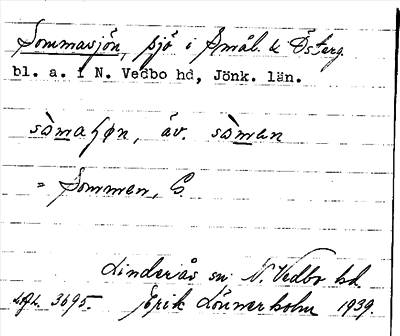 Sommasjön, sjö i Smål. & Österg.
bl. a. i N. Vedbo hd, Jönk. län.
såmaʃøn, äv. såman
= Sommen, G.
Linderås sn N. Vedbo hd
Erik Lönnerholm 1939.